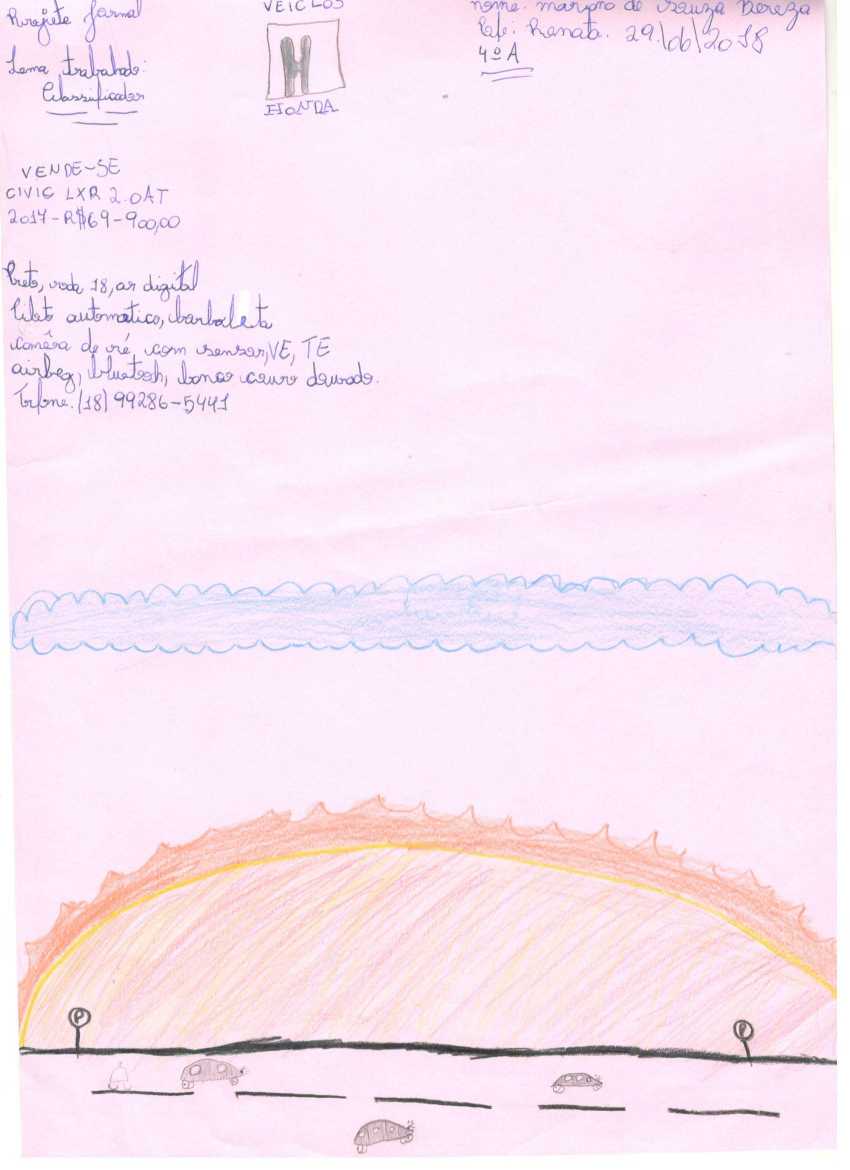 Projeto Jornal
Tema trabalhado:
Classificados
VEICLOS
H
HONDA
nome: de Souza Bereza
Prof: Renata. 29/06/2018
4º A
VENDE-SE
CIVIC LXR 2.0AT
2014-R$69-900,00
Preto, roda 18, ar digital
Piloto automatico, barbaleta
de ré, com sensor, VE, TE
airbeg, couro dourado.
(18) 99286-5441
P
P